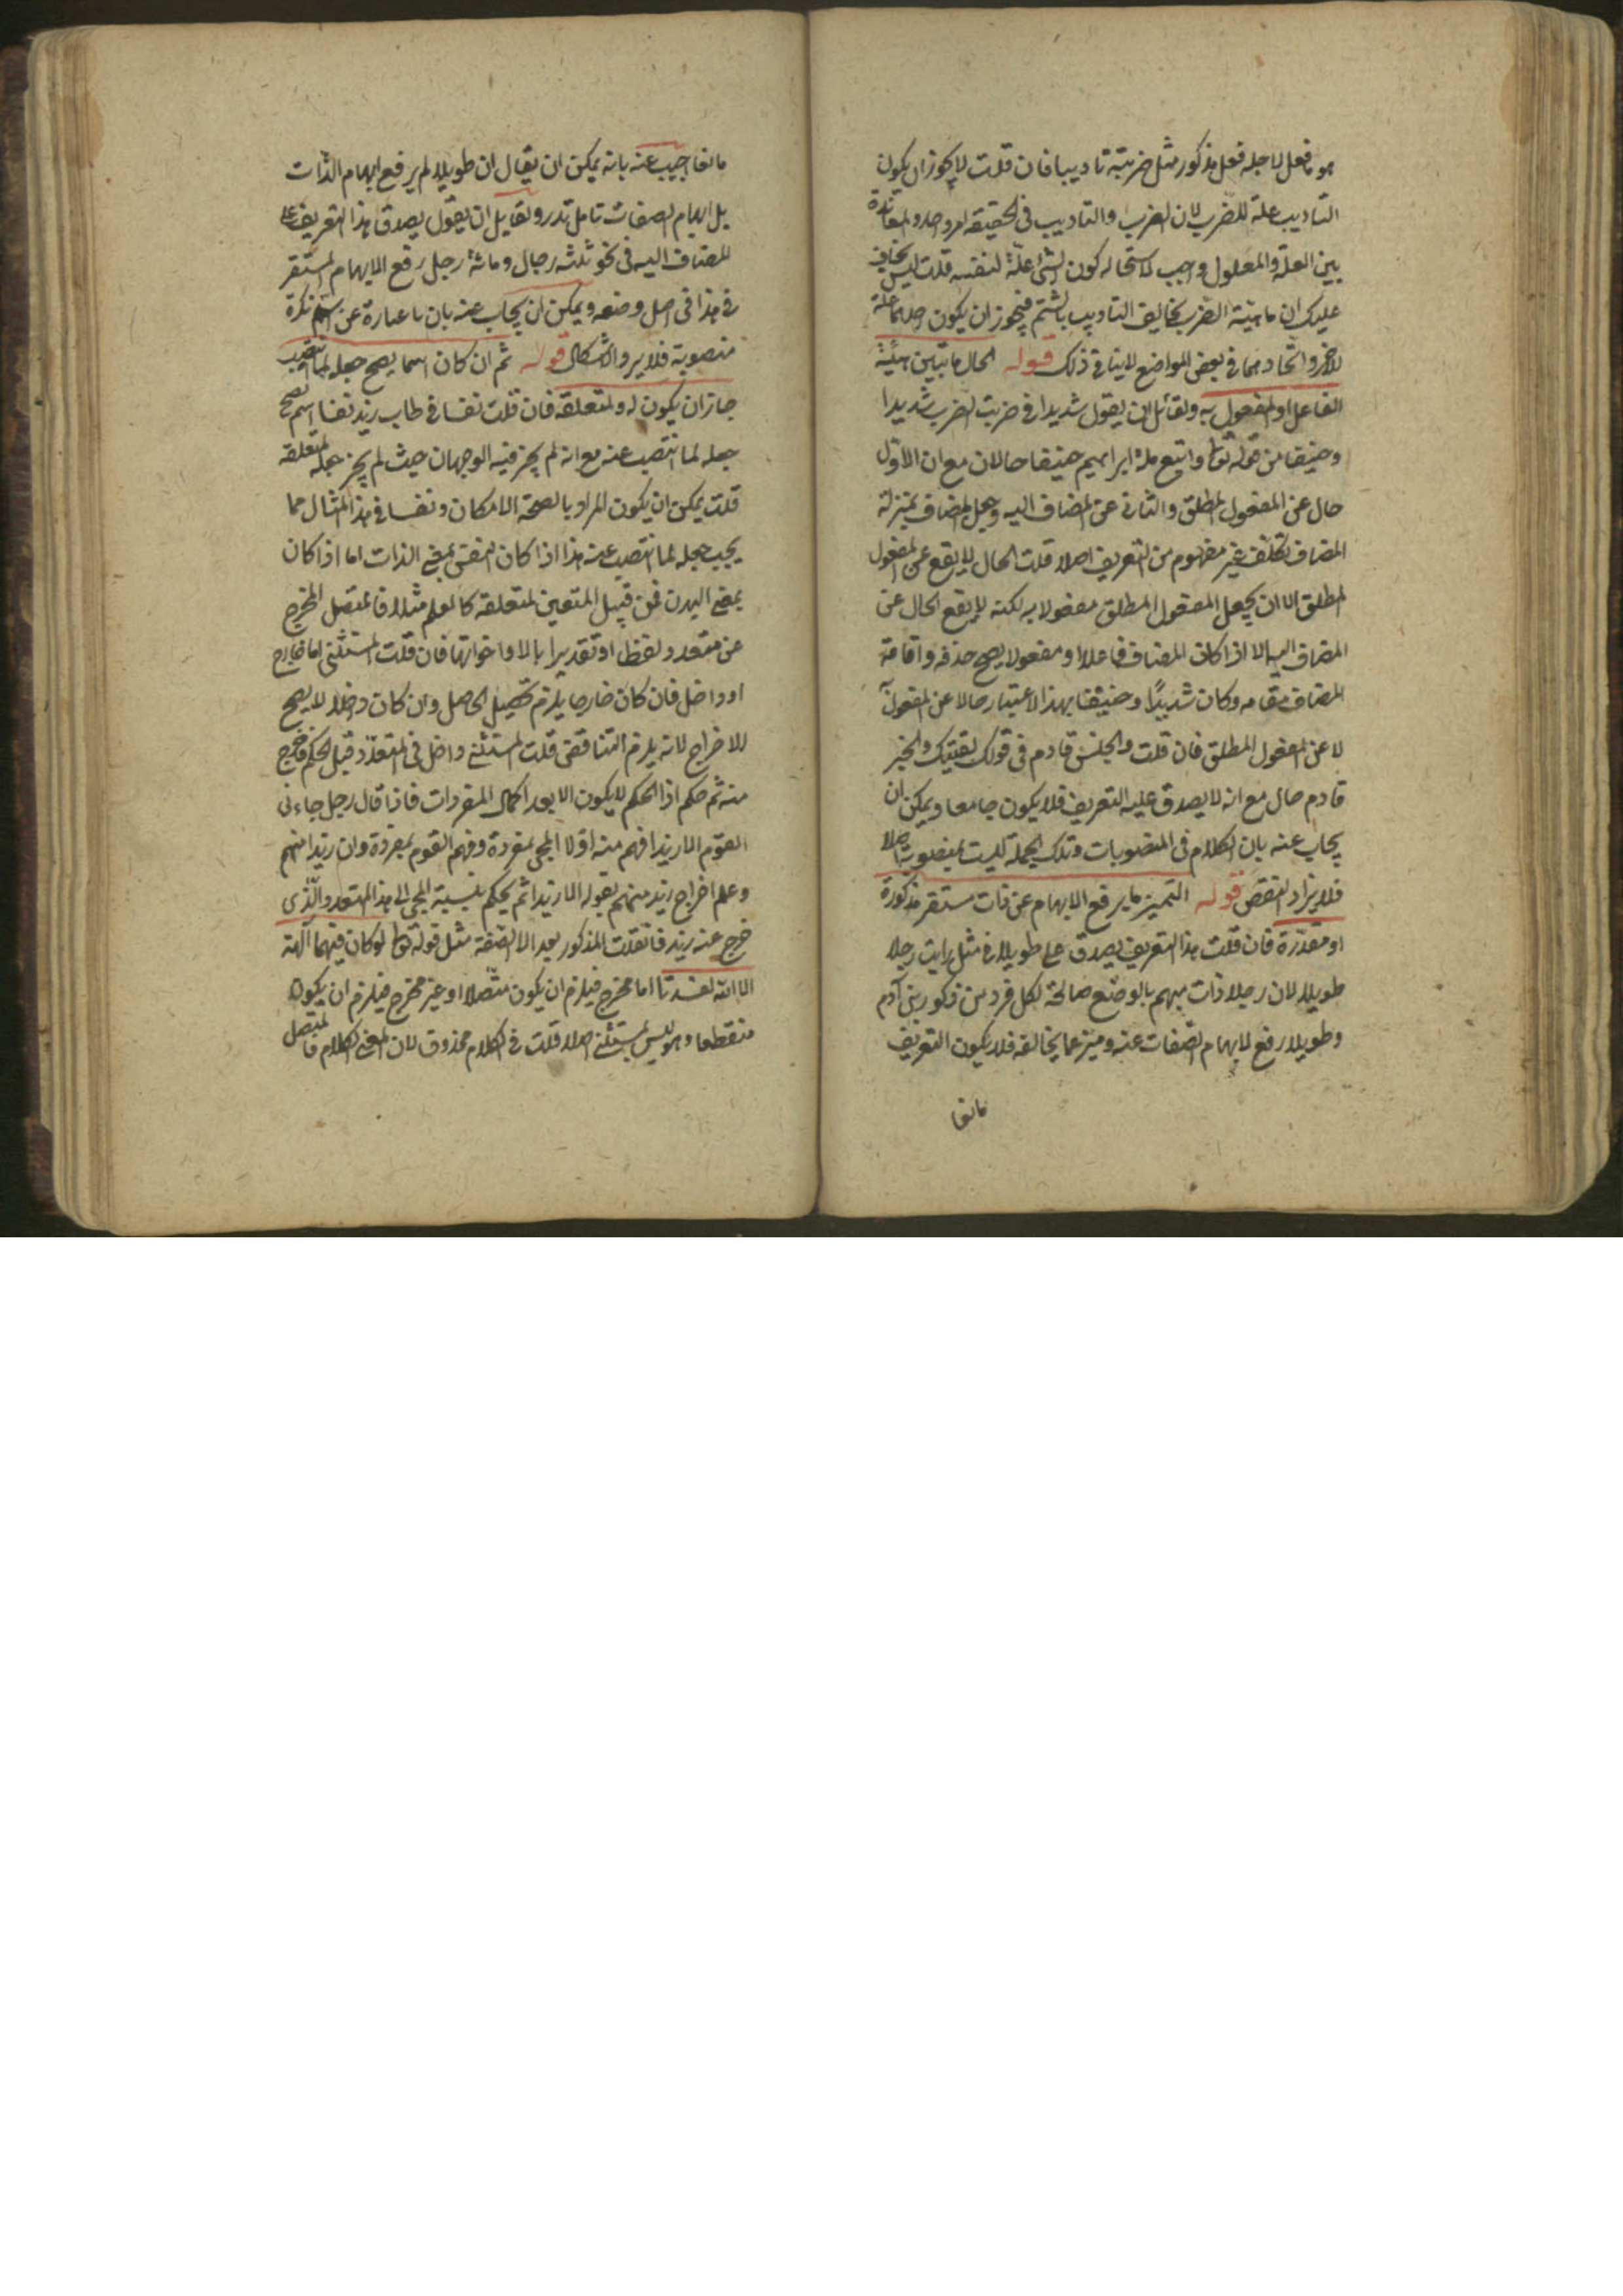 هو ما فعل لاجله فعل مذكور مثل ضربته تاديبا فان قلت لا يجوز ان يكون
التاديب علة للضرب لان الضرب والتاديب في الحقيقة امر واحد والمغايرة
بين العلة والمعلول واجب لاستحالة كون الشئ علة لنفسه قلت ليس بخاف
عليك ان ماهية الضرب يخالف التاديب بالشتم فيجوز ان يكون احدهما علة
للاخر واتحادهما في بعض المواضع لا ينافي ذلك قوله الحال ما يبين هيئة
الفاعل او المفعول به ولقائل ان يقول شديدا في ضربت الضرب شديدا
وحنيفا من قوله تعا واتبع ملة ابراهيم حنيفا حالان مع ان الاول
حال عن المفعول المطلق والثاني عن المضاف اليه وجعل المضاف بمنزلة
المضاف تكلف غير مفهوم من التعريف اصلا قلت الحال لا يقع عن المفعول
المطلق الا ان يجعل المفعول المطلق مفعولا به لكنه لا يقع الحال عن
المضاف اليه الا اذا كان المضاف فاعلا او مفعولا يصح حذفه واقامة
المضاف مقامه وكان شديدًا وحنيفا بهذا الاعتبار حالا عن المفعول
لا عن المفعول المطلق فان قلت والجلس قادم في قولك لقيتك والخبر
قادم حال مع انه لا يصدق عليه التعريف فلا يكون جامعا ويمكن ان
يجاب عنه بان الكلام في المنصوبات وتلك الجملة ليست بمنصوبة اصلا
فلا يزاد النقض قوله التميز ما يرفع الابهام عن ذات مستقر مذكورة
او مقدّرة فان قلت هذا التعريف يصدق على طويلا في مثل رايت رجلا
طويلا لان رجلا ذات مبهم بالوضع صالحة لكل فرد من ذكور بني آدم
وطويلا رفع لابهام الصفات عنه وميّز عما يخالفه فلا يكون التعريف
مانعا
مانعا اجيب عنه بانه يمكن ان يقال ان طويلا لم يرفع ابهام الذات
بل ابهام الصفات تامل تدر ولقايل ان يقول يصدق هذا التعريف على
المضاف اليه في نحو ثلثه رجال ومائة رجل رفع الابهام المستقر
في هذا في اصل وضعه ويمكن ان يجاب عنه بان ما عبارة عن اسم نكرة
منصوبة فلا يرد الاشكال قوله ثم ان كان اسما يصح جعله لما انتصب
جاز ان يكون له ولمتعلقه فان قلت نفسا في طاب زيد نفسا اسم يصح
جعله لما انتصب عنه مع انه لم يجز فيه الوجهان حيث لم يجز جعله لمتعلقه
قلت يمكن ان يكون المراد بالصحة الامكان ونفسا في هذا المثال مما
يجب جعله لما انتصب عنه هذا اذا كان النفس بمعنى الذات اما اذا كان
بمعنى البدن فمن قبيل المتعين لمتعلقه كالعلم مثلا فالمتصل المخرج
عن متعدد لفظا او تقديرا بالا واخواتها فان قلت المستثنى اما خارج
او داخل فان كان خارجا يلزم تحصيل الحاصل وان كان داخلا لا يصح
الاخراج لانه يلزم التناقض قلت المستثنى داخل في المتعدّد قبل الحكم فاخرج
منه ثم حكم اذ الحكم لا يكون الا بعد اكمال المفردات فاذا قال رجل جاءني
القوم الا زيدا فهم منه اولا المجئ بمفردة وفهم القوم بمفردة وان زيدا منهم
وعلم اخراج زيد منهم بقوله الا زيدا ثم يحكم بنسبة المجئ الى هذا المتعدد والّذي
خرج عنه زيد فان قلت المذكور بعد الا الصّفة مثل قوله تعا لوكان فيهما آلهة
الا الله لفسدتا اما مخرج فيلزم ان يكون متّصلا او غير مخرج فيلزم ان يكون
منقطعا وهو ليس بمستثنى اصلا قلت في الكلام محذوف لان المعنى الكلام فالمتصل